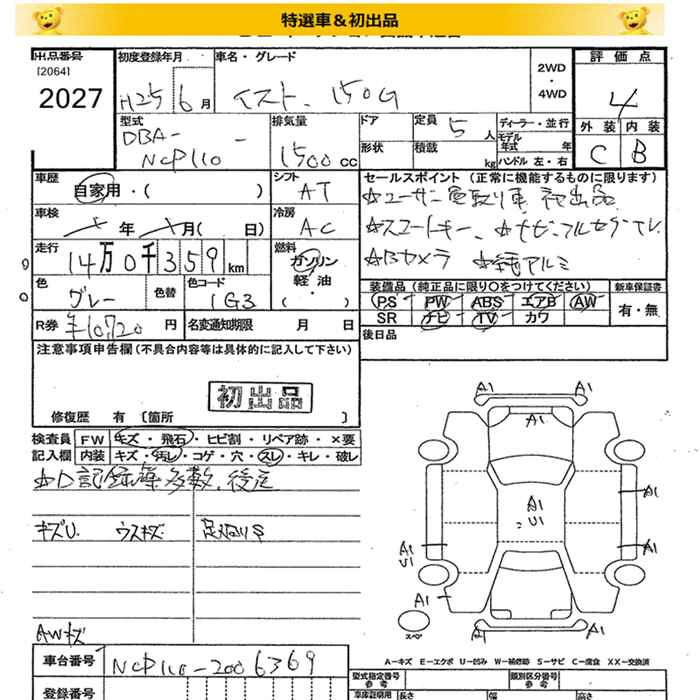 特選車＆初出品
出品番号 初度登録年月 車名・グレード 2WD ・ 4WD 評価点
[2064]
2027 H25 6月 イスト、150G 4
型式 排気量 ドア 定員 5人 ディーラー・並行 外装 内装
DBA- NCP110 1500cc 形状 積載 kg モデル年式 年 C B
ハンドル 左・右
車歴 シフト セールスポイント (正常に機能するものに限ります)
自家用・( ) AT ☆ユーザー買取り車 初出品
車検 年 月( 日) 冷房 AC ☆スマートキー、☆ナビ・フルセグTV
走行 14万0千359km 燃料 ガソリン 軽油・ ( ・ ) ☆Bカメラ ☆純アルミ
色 グレー 色替 色コード 1G3 装備品 (純正品に限り〇をつけてください) 新車保証書
PS PW ABS エアB AW 有・無
SR ナビ TV カワ
R券 ¥10,720円 名変通知期限 月 日 後日品
注意事項申告欄 (不具合内容等は具体的に記入して下さい)
初出品
修復歴 有 〔箇所 〕
検査員 FW キズ・飛石・ヒビ割・リペア跡・×要
記入欄 内装 キズ・汚レ・コゲ・穴・スレ・キレ・破レ
☆D記録簿多数、後送
キズU. ウスキズ 足廻りS
AWキズ
A1 A1
A1
A1
A1
U1
A1
U1
A1
A1
スペア
A1 A1
A－キズ E－エクボ U－凹み W－補修跡 S－サビ C－腐食 XX－交換済
車台番号 NCP110-2006369 型式指定番号 参考 類別区分番号 参考
登録番号 車庫証明用 長さ 幅 高さ